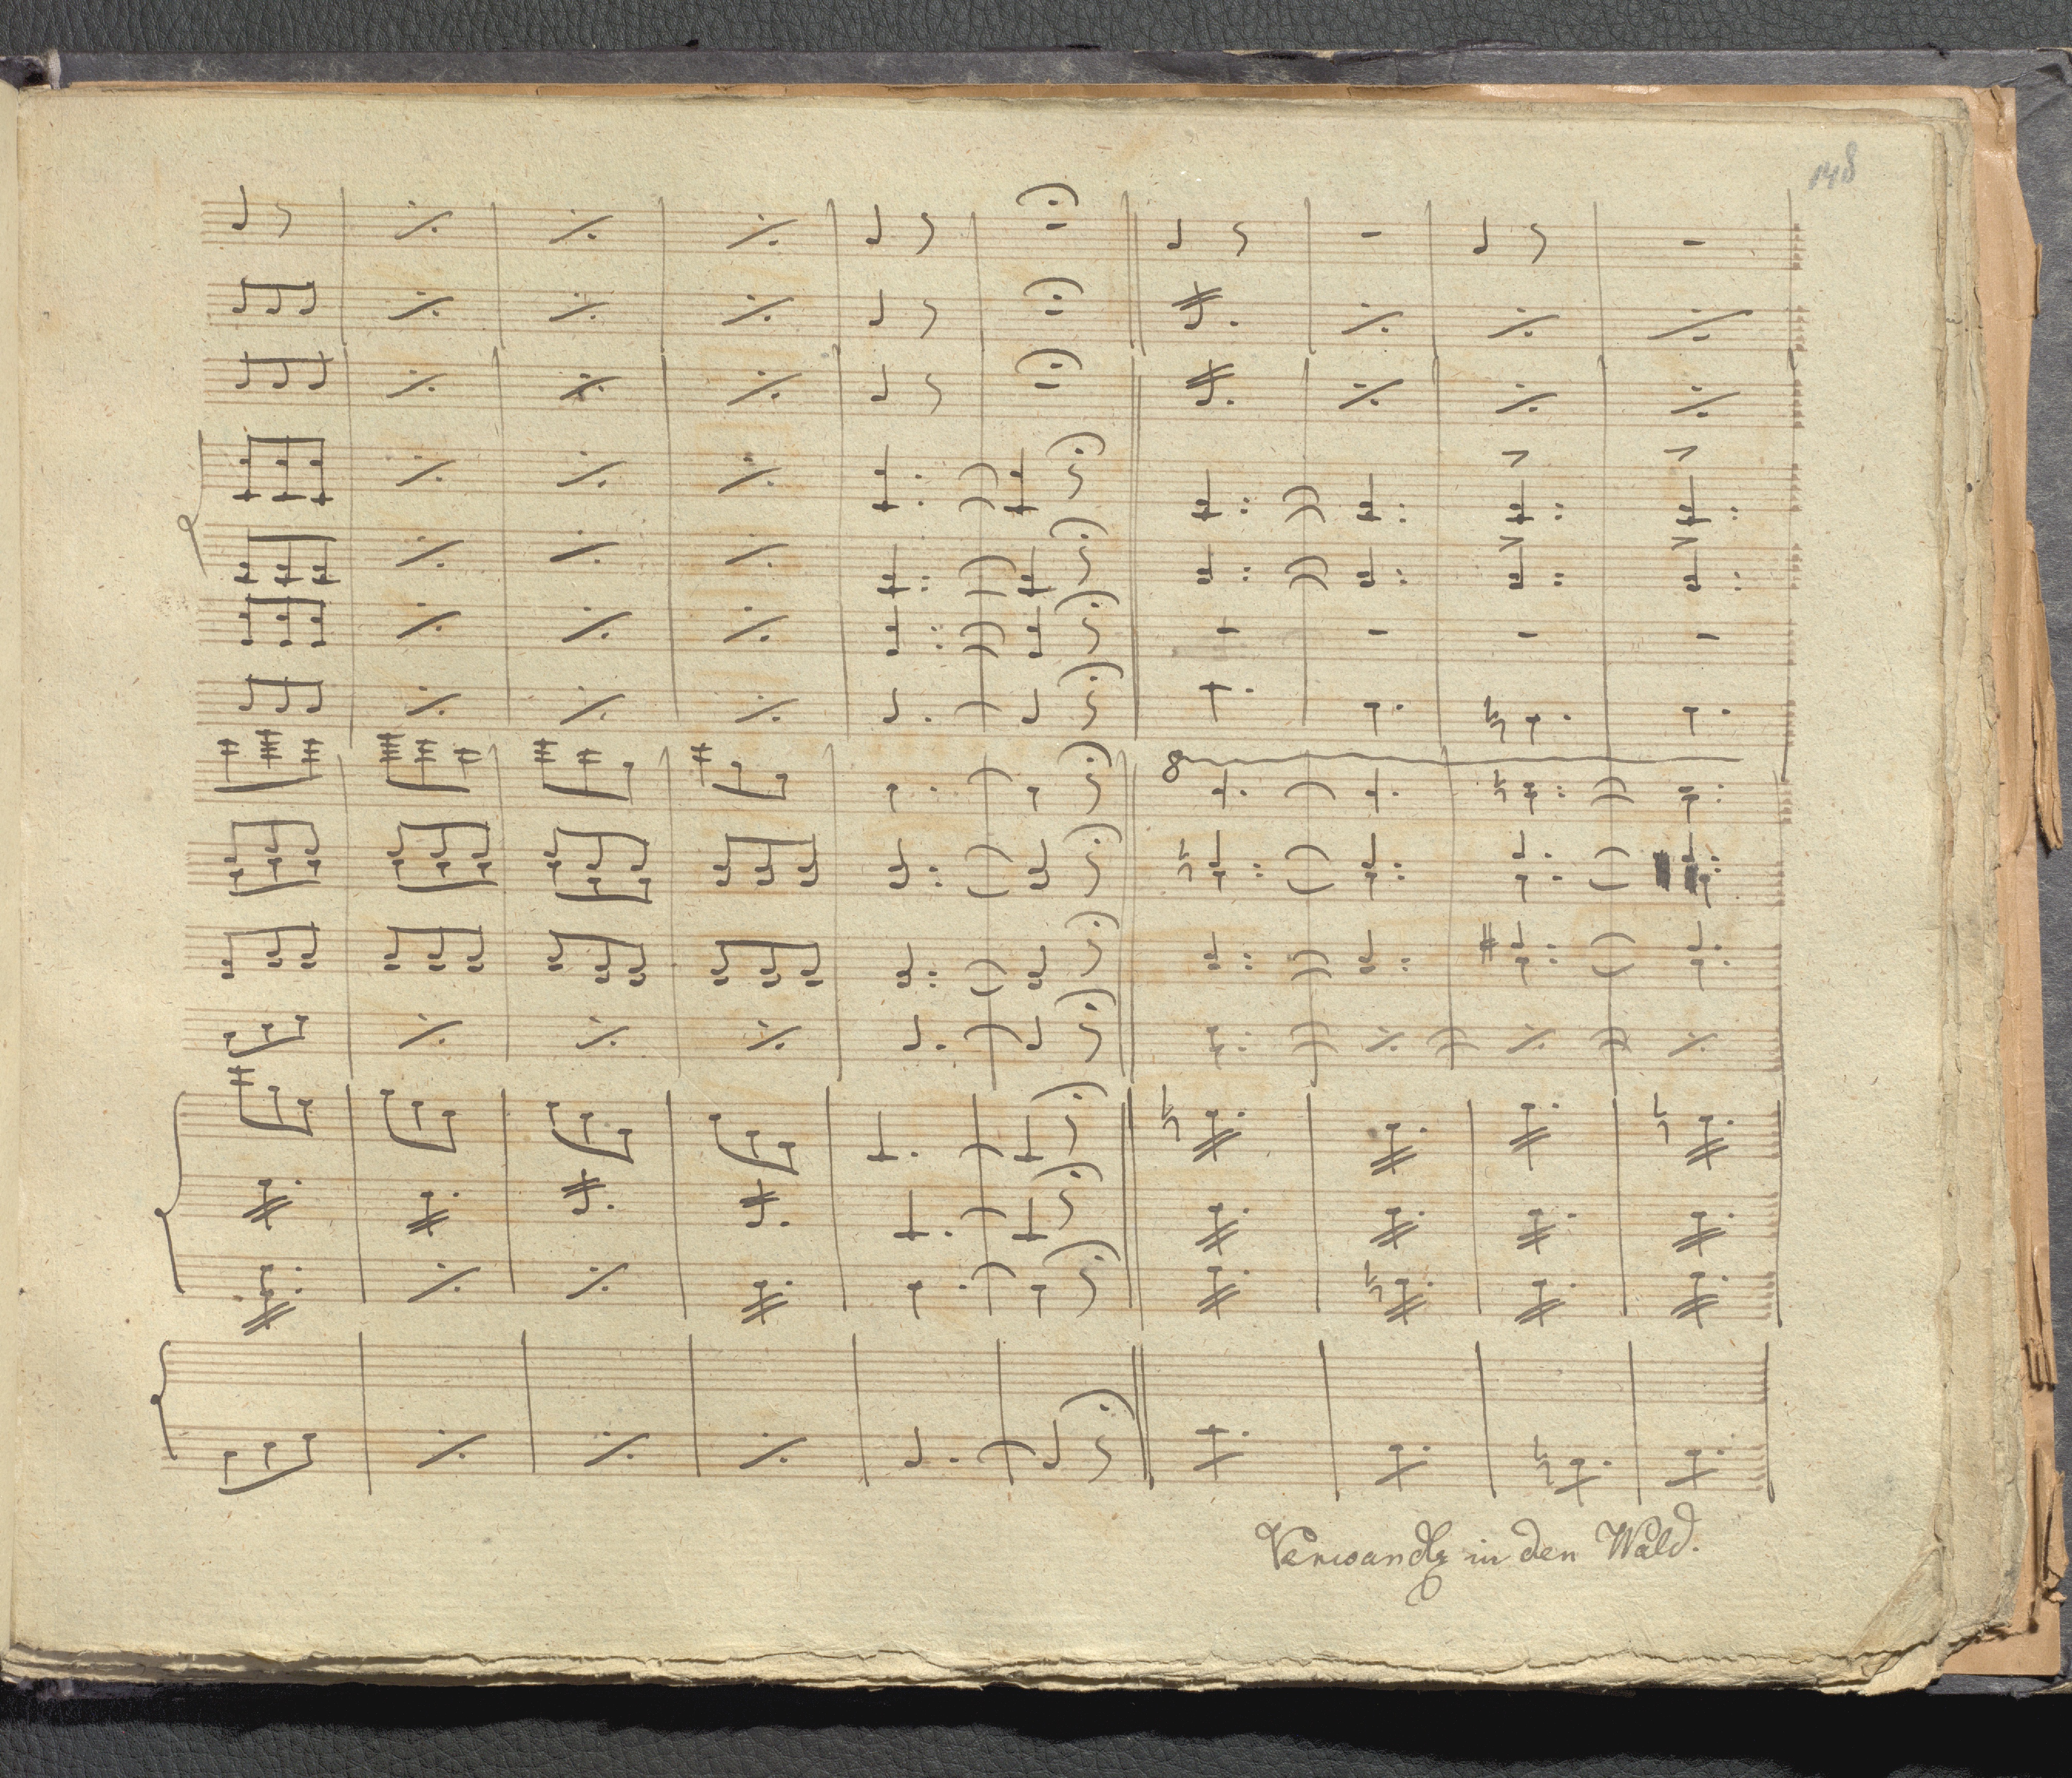 148
8
Verwandlg in den Wald.